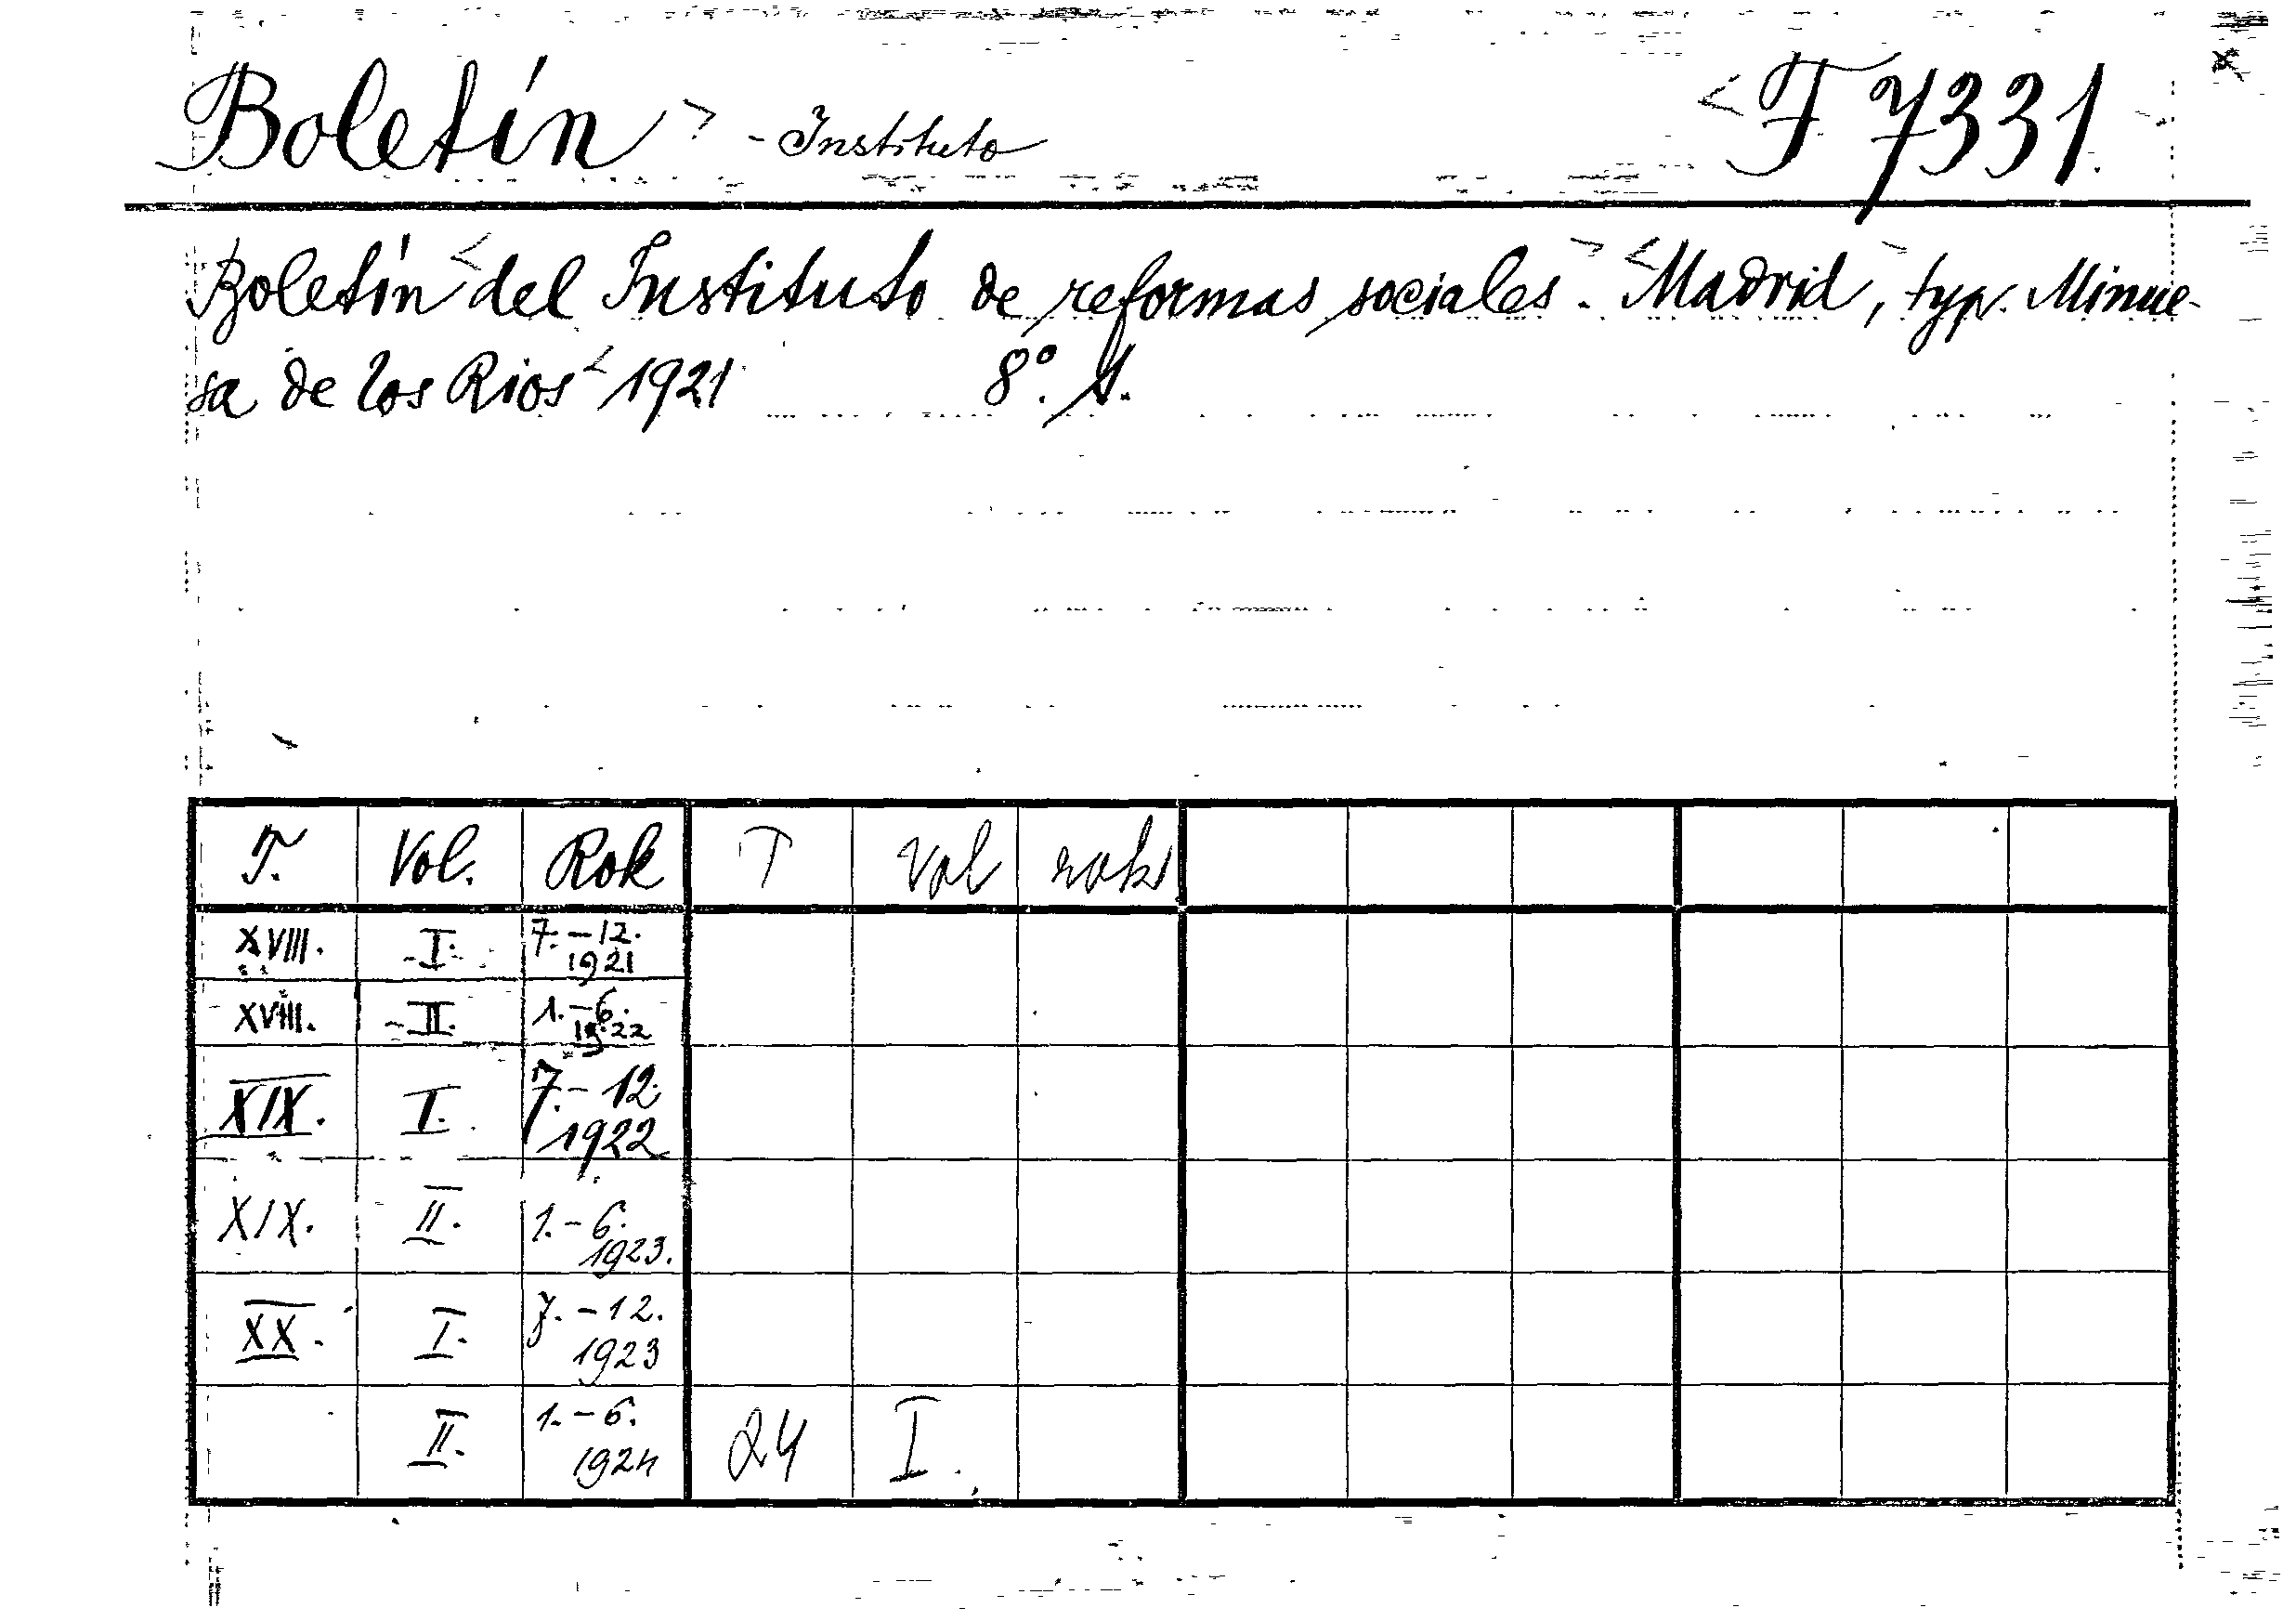 Boletín - Instituto F 7331.
Boletín del Instituto de reformas sociales. Madrid, typ. Minue-
sa de los Rios 1921 8°.
T. Vol. Rok T Vol rok
XVIII. I. 7. - 12. 1921
XVIII. II. 1. - 6. 1922
XIX. I. 7. - 12. 1922
XIX. II. 1. - 6. 1923.
XX. I. 7. - 12. 1923
II. 1. - 6. 1924 24 I.